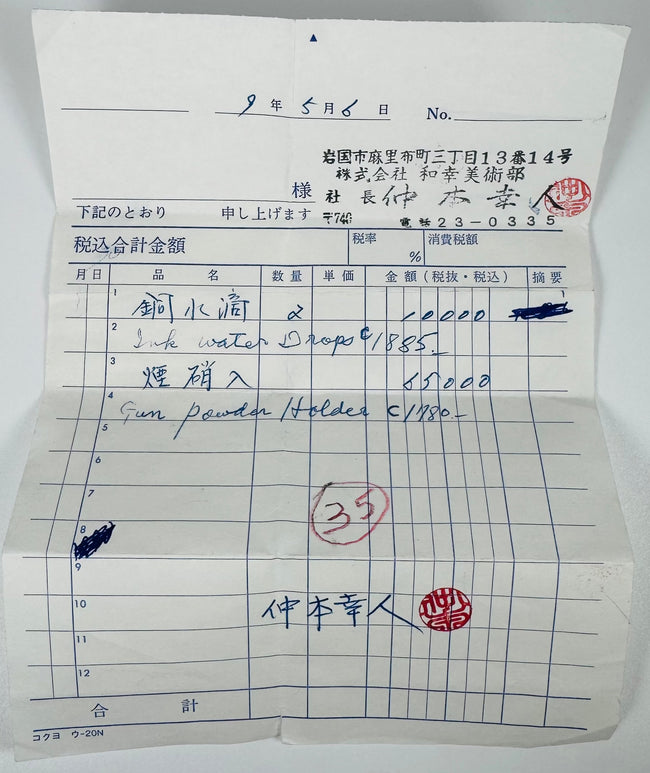 9年5月6日 No.
岩国市麻里布町三丁目13番14号
株式会社 和幸美術部
様 社長 仲本幸人
下記のとおり 申し上げます 〒740 電話23-0335
税込合計金額 税率 % 消費税額
月日 品名 数量 単価 金額(税抜・税込) 摘要
1 銅水滴 2 10000
2 Ink water Drops C1885_
3 煙硝入 65000
4 Gun powder Holder C1780-
5
6
7
35
8
9
10 仲本幸人
11
12
合計
コクヨ ウ-20N